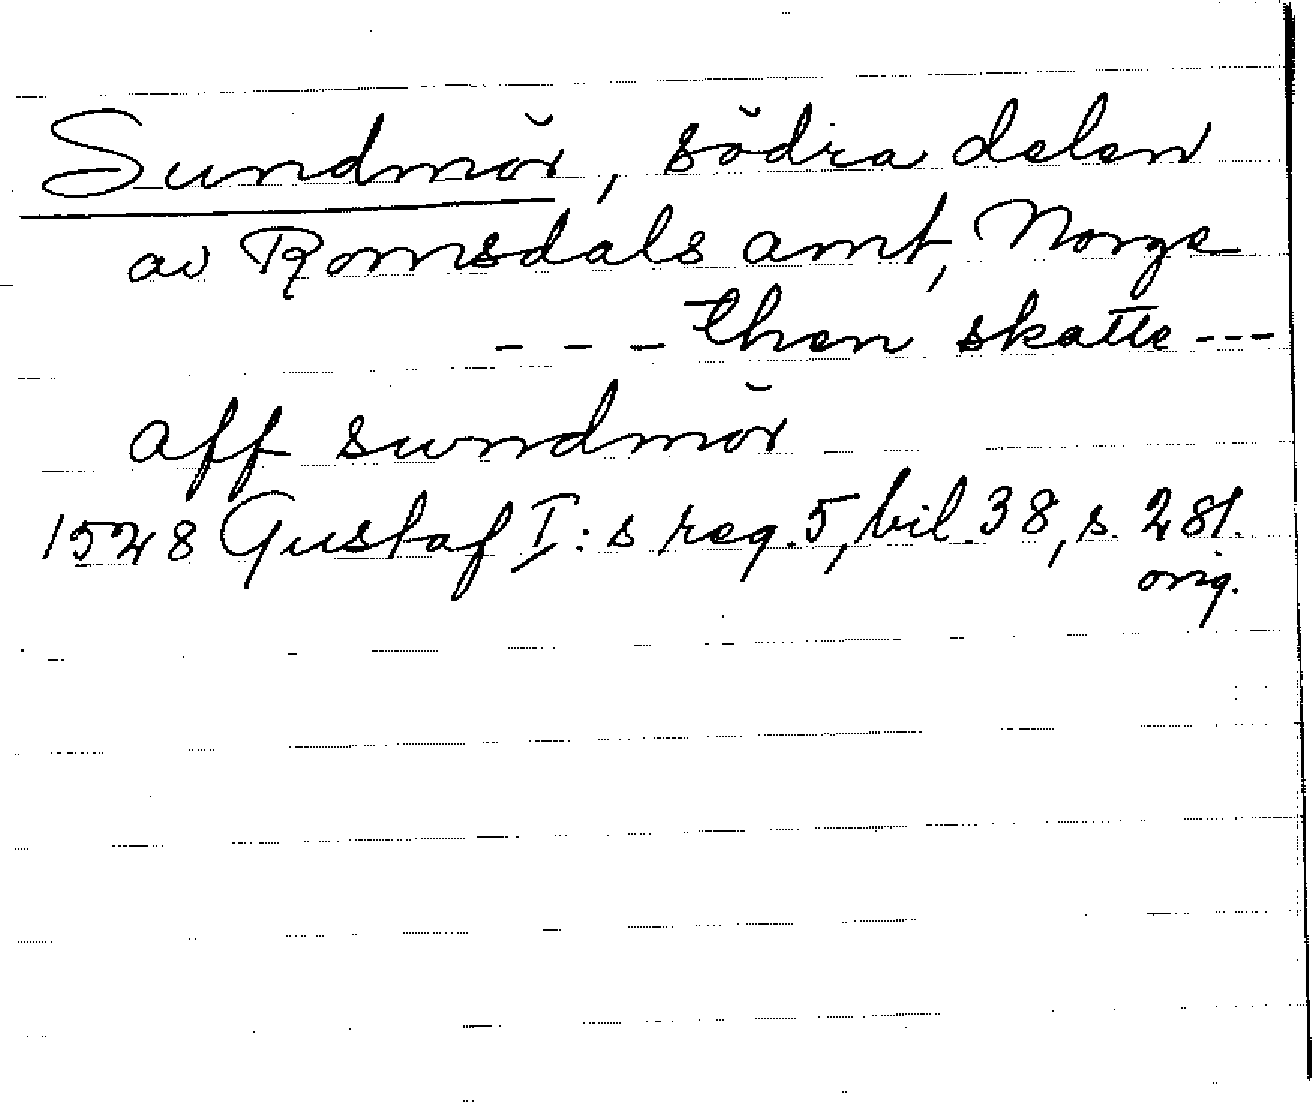 Sundmör, södra delen
av Romsdals amt, Norge
--- then skatte ---
aff sundmör
1528 Gustaf I:s reg. 5, bil. 38, s. 281.
orig.